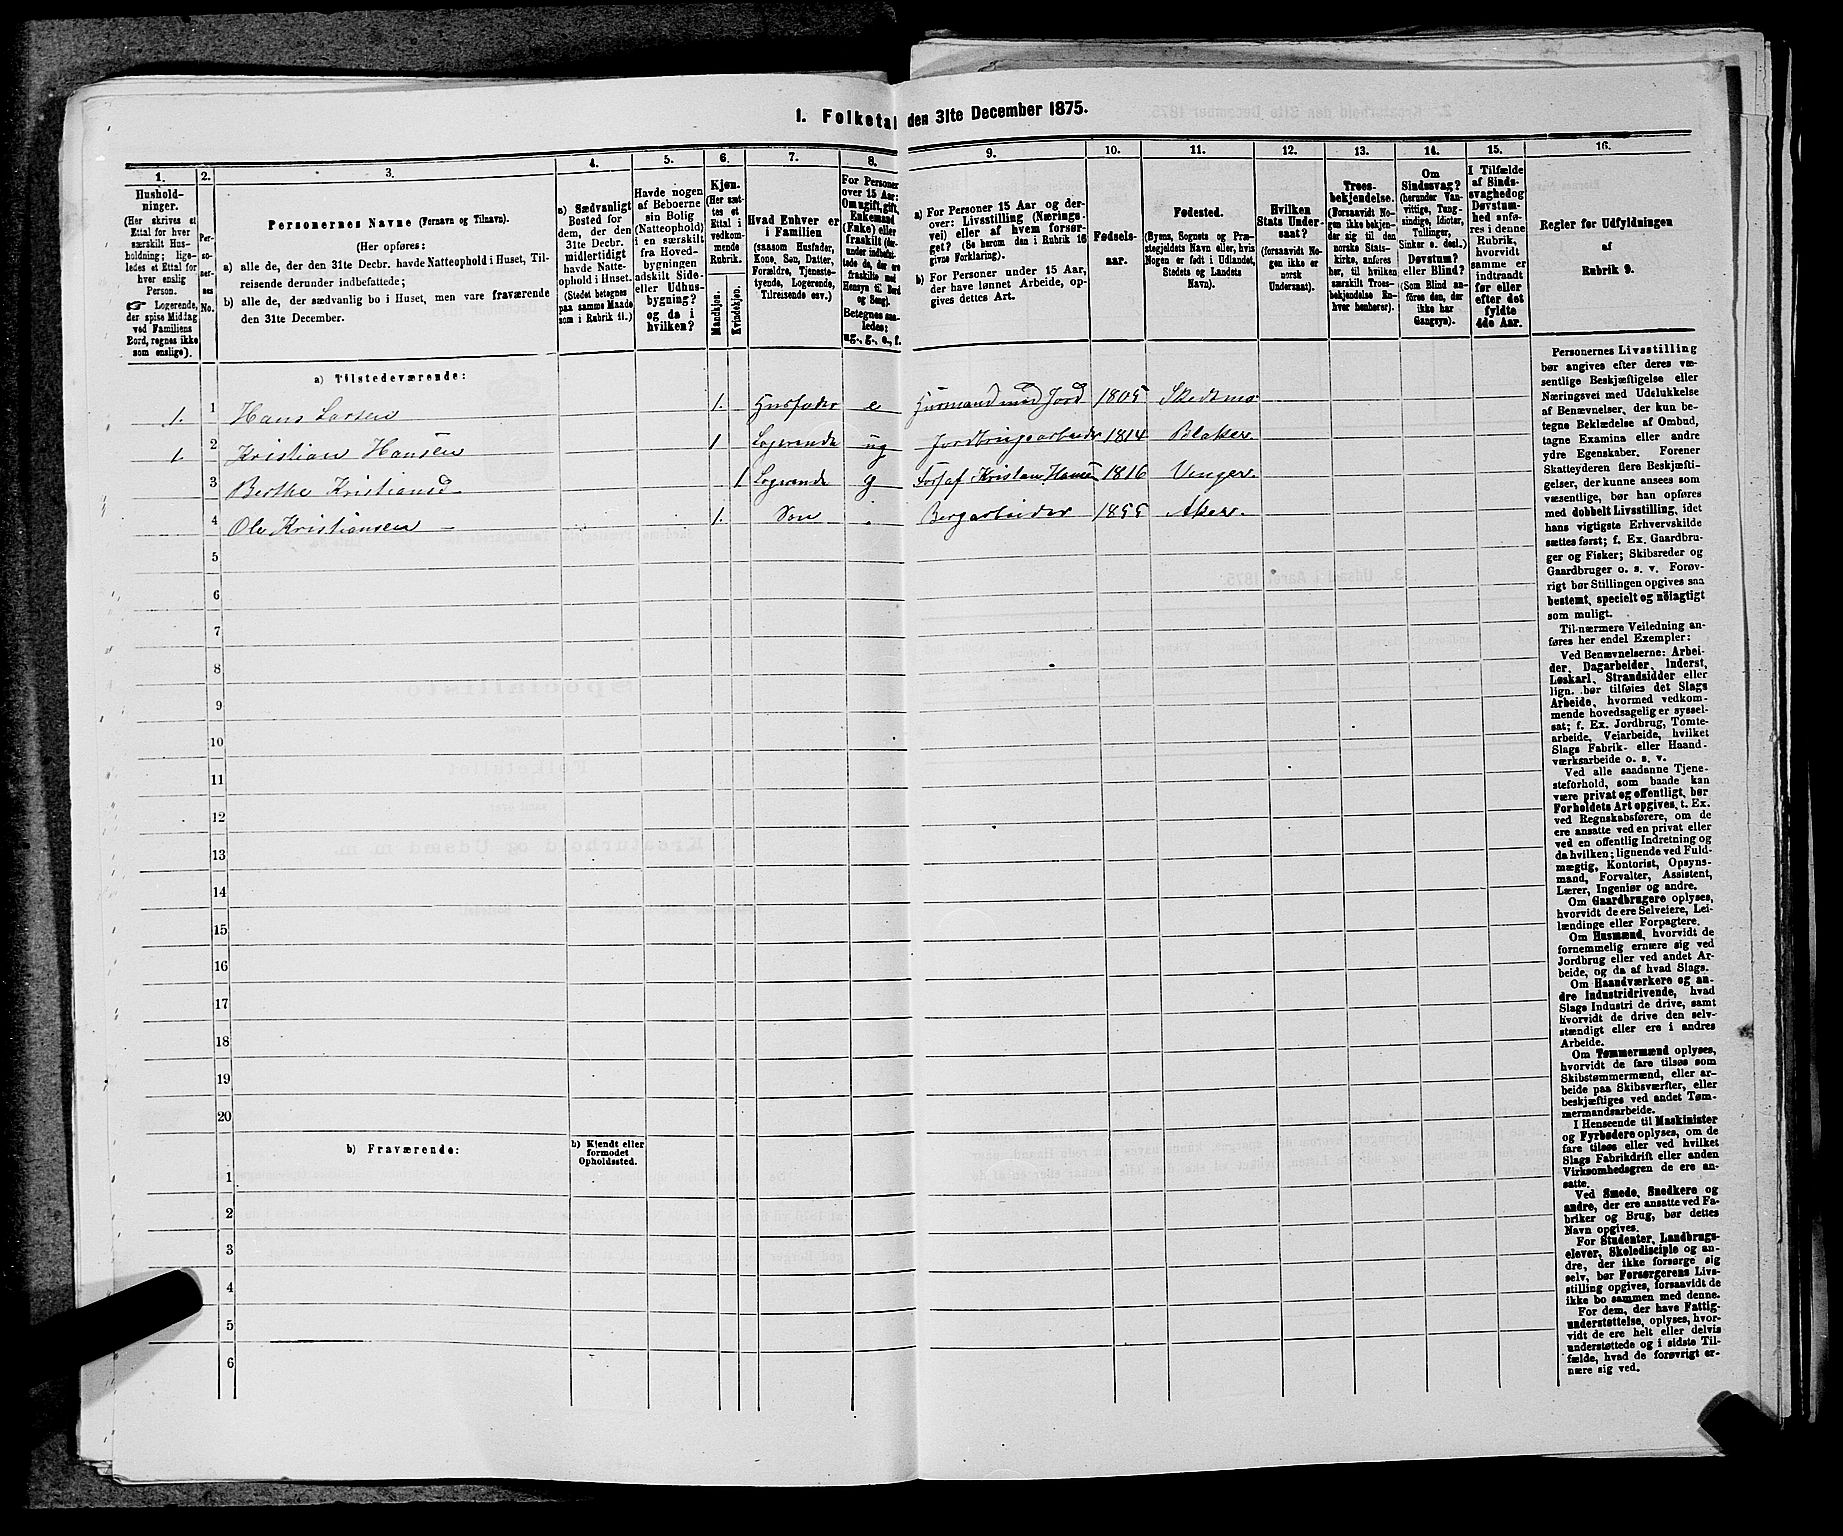 1. Folketal den 31te December 1875.
1. 2. 3. 4. 5. 6. 7. 8. 9. 10. 11. 12. 13. 14. 15. 16.
Hushold-
ninger.
(Her skrives et
Ettal for hver
særskilt Hus-
holdning; lige-
ledes et Ettal for
hver enslig
Person.
☞ Logerende,
der spise Middag
ved Familiens
Bord, regnes ikke
som enslige).
Per-
so-
ner-
nes
No.
Personernes Navne (Fornavn og Tilnavn).
(Her opføres:
a) alle de, der den 31te Decbr. havde Natteophold i Huset, Til-
reisende derunder indbefattede;
b) alle de, der sædvanlig bo i Huset, men vare fraværende
den 31te December.
a) Sædvanligt
Bosted for
dem, der den
31te Decbr.
midlertidigt
havde Natte-
ophold i Huset.
(Stedet betegnes
paa samme Maade
som i Rubrik 11.)
Havde nogen
af Beboerne
sin Bolig
(Natteophold)
i en særskilt
fra Hoved-
bygningen
adskilt Side-
eller Udhus-
bygning?
og da i
hvilken?
Kjøn.
(Her sæt-
tes et
Ettal i
vedkom-
mende
Rubrik.
Mandkjøn.
Kvindekjøn.
Hvad Enhver er
i Familien
(saasom Husfader,
Kone, Søn, Datter,
Forældre, Tjeneste-
tyende, Logerende,
Tilreisende osv.)
For Personer
over 15 Aar:
Om ugift, gift,
Enkemand
(Enke) eller
fraskilt (der-
under indbefat-
tede de, der ere
fraskilte med
Hensyn til Bord
og Seng).
Betegnes saa-
ledes:
ug., g., e., f.
a) For Personer 15 Aar og der-
over: Livsstilling (Nærings-
vei) eller af hvem forsør-
get? (Se herom den i Rubrik 16
givne Forklaring).
b) For Personer under 15 Aar,
der have lønnet Arbeide, op-
gives dettes Art.
Fødsels-
aar.
Fødested.
(Byens, Sognets og Præ-
stegjeldets Navn eller, hvis
Nogen er født i Udlandet,
Stedets og Landets
Navn).
Hvilken
Stats Under-
saat?
(forsaavidt No-
gen ikke er
norsk
Undersaat).
Troes-
bekjendelse.
(Forsaavidt No-
gen ikke bekjen-
der sig til den
norske Stats-
kirke, anføres
her, til hvilken
særskilt Troes-
bekjendelse En-
hver henhører).
Om
Sindssvag?
(herunder Van-
vittige, Tung-
sindige, Idioter,
Tullinger,
Sinker o. desl.)
Døvstum?
eller Blind?
(Som Blind an-
føres den, der
ikke har
Gangsyn).
I Tilfælde
af Sinds-
svaghed og
Døvstum-
hed anfø-
res i denne
Rubrik,
hvorvidt
samme er
indtraadt
før eller
efter det
fyldte
4de Aar.
Regler for Udfyldningen
af
Rubrik 9.
a) Tilstedeværende:
1. 1 Hans Larsen 1. Husfader e Husmand med Jord 1805 Skedsmo
1 2 Kristian Hansen 1 Logerende ug Jordbrugsarbeider 1814 Blaker
3 Berthe Kristiansd. 1 Logerende g Fors. af Kristian Hansen 1816 Unger
4 Ole Kristiansen 1. Søn Bergarbeider 1855 Aker
5
6
7
8
9
10
11
12
13
14
15
16
17
18
19
20
b) Fraværende:
b) Kjendt eller
formodet
Opholdssted.
1
2
3
4
5
6
Personernes Livsstilling
bør angives efter deres væ-
sentlige Beskjæftigelse eller
Næringsvei med Udelukkelse
af Benævnelser, der kun be-
tegne Beklædelse af Ombud,
tagne Examina eller andre
ydre Egenskaber. Forener
Skatteyderen flere Beskjæfti-
gelser, der kunne ansees som
væsentlige, bør han opføres
med dobbelt Livsstilling, idet
hans vigtigste Erhvervskilde
sættes først; f. Ex. Gaardbru-
ger og Fisker; Skibsreder og
Gaardbruger o. s. v. Forøv-
rigt bør Stillingen opgives saa
bestemt, specielt og nøiagtigt
som muligt.
Til nærmere Veiledning an-
føres her endel Exempler:
Ved Benævnelserne: Arbei-
der, Dagarbeider, Inderst,
Løskarl, Strandsidder eller
lign. bør tilføies det Slags
Arbeide, hvormed vedkom-
mende hovedsagelig er syssel-
sat; f. Ex. Jordbrug, Tomte-
arbeide, Veiarbeide, hvilket
Slags Fabrik- eller Haand-
værksarbeide o. s. v.
Ved alle saadanne Tjene-
steforhold, som baade kan
være privat og offentligt, bør
Forholdets Art opgives, t. Ex.
ved Regnskabsførere, om de
ere ansatte ved en privat eller
ved en offentlig Indretning og
da hvilken; lignende ved Fuld-
mægtig, Kontorist, Opsyns-
mand, Forvalter, Assistent,
Lærer, Ingeniør og andre.
Om Gaardbrugere oplyses,
hvorvidt de ere Selveiere, Lei-
lændinge eller Forpagtere.
Om Husmænd, hvorvidt de
fornemmelig ernære sig ved
Jordbrug eller ved andet Ar-
beide, og da af hvad Slags.
Om Haandværkere og an-
dre Industridrivende, hvad
Slags Industri de drive, samt
hvorvidt de drive den selv-
stændigt eller ere i andres
Arbeide.
Om Tømmermænd oplyses,
hvorvidt de fare tilsøs som
Skibstømmermænd, eller ar-
beide paa Skibsværfter, eller
beskjæftiges ved andet Tøm-
mermandsarbeide.
I Henseende til Maskinister
og Fyrbødere oplyses, om de
fare tilsøs eller ved hvilket
Slags Fabrikdrift eller anden
Virksomhedsgren de ere an-
satte.
Ved Smede, Snedkere og
andre, der ere ansatte ved Fa-
briker og Brug, bør dettes
Navn opgives.
For Studenter, Landbrugs-
elever, Skoledisciple og an-
dre, der ikke forsørge sig
selv, bør Forsørgerens Livs-
stilling opgives, forsaavidt de
ikke bo sammen med denne.
For dem, der have Fattig-
understøttelse, oplyses, hvor-
vidt de ere helt eller delvis
understøttede og i sidste Til-
fælde, hvad de forøvrigt er-
nære sig ved.